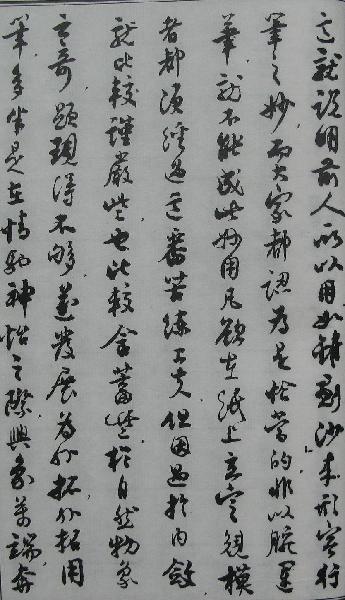 這就說明前人所以用如錐劃沙來形容行
筆之妙而大家都認為是恰當的非以腕運
筆就不能成此妙用凡欲在紙上立定規模
者都須經過這番苦練工夫但因過於內斂
就比較謹嚴些也比較含蓄些於自然物象
之奇顯現得不够遂發展為外拓外拓用
筆多半是在情馳神怡之際興象萬端奔